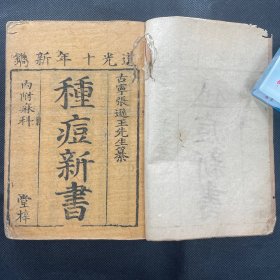 道光十年新鐫
古寧張遜玉先生纂
種痘新書
內附麻科
堂梓